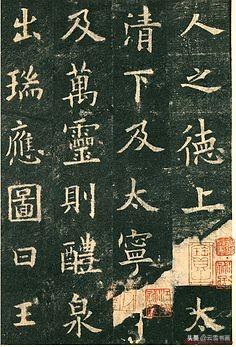 人之德上太
清下及太寧
及萬靈則醴泉
出瑞應圖曰王
头条 @云雲书画